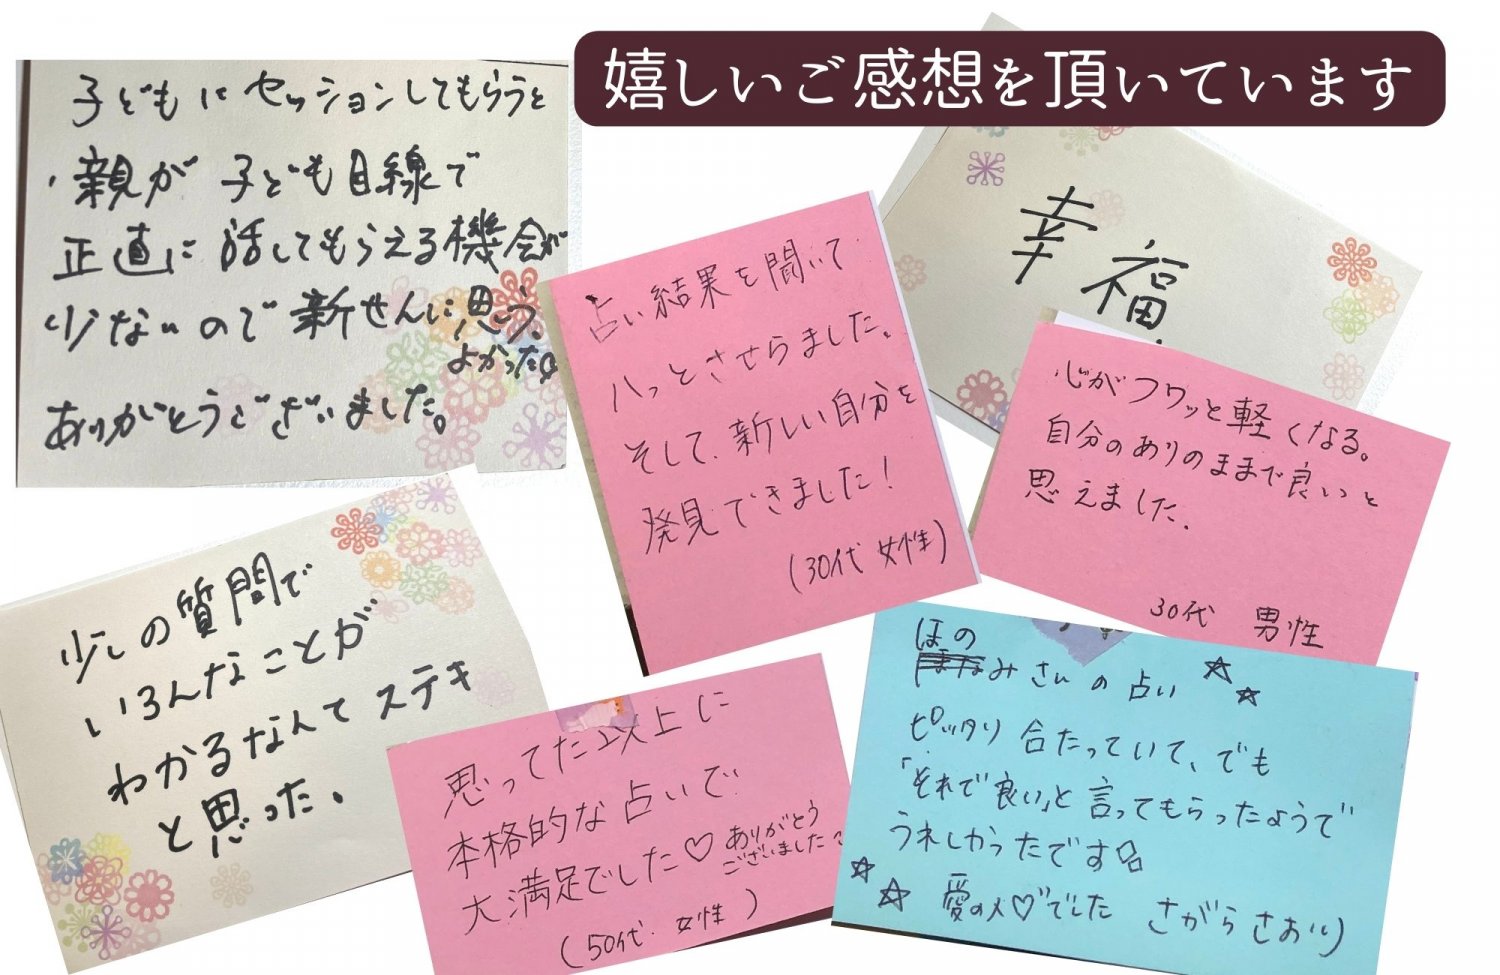 嬉しいご感想を頂いています
子どもにセッションしてもらうと
・親が子ども目線で
正直に話してもらえる機会が
少ないので新せんに思う。
よかった
ありがとうございました。
占い結果を聞いて
ハッとさせらました。
そして、新しい自分を
発見できました!
(30代 女性)
幸福
心がフワッと軽くなる。
自分のありのままで良いと
思えました。
30代 男性
少しの質問で
いろんなことが
わかるなんてステキ
と思った。
思ってた以上に
本格的な占いで
大満足でした♡ ありがとう
ございました
(50代 女性)
ほの
みさんの占い ☆☆
ピッタリ合たっていて、でも
「それで良い」と言ってもらったようで
うれしかったです
☆☆ 愛の人♡でした さがらさおり)